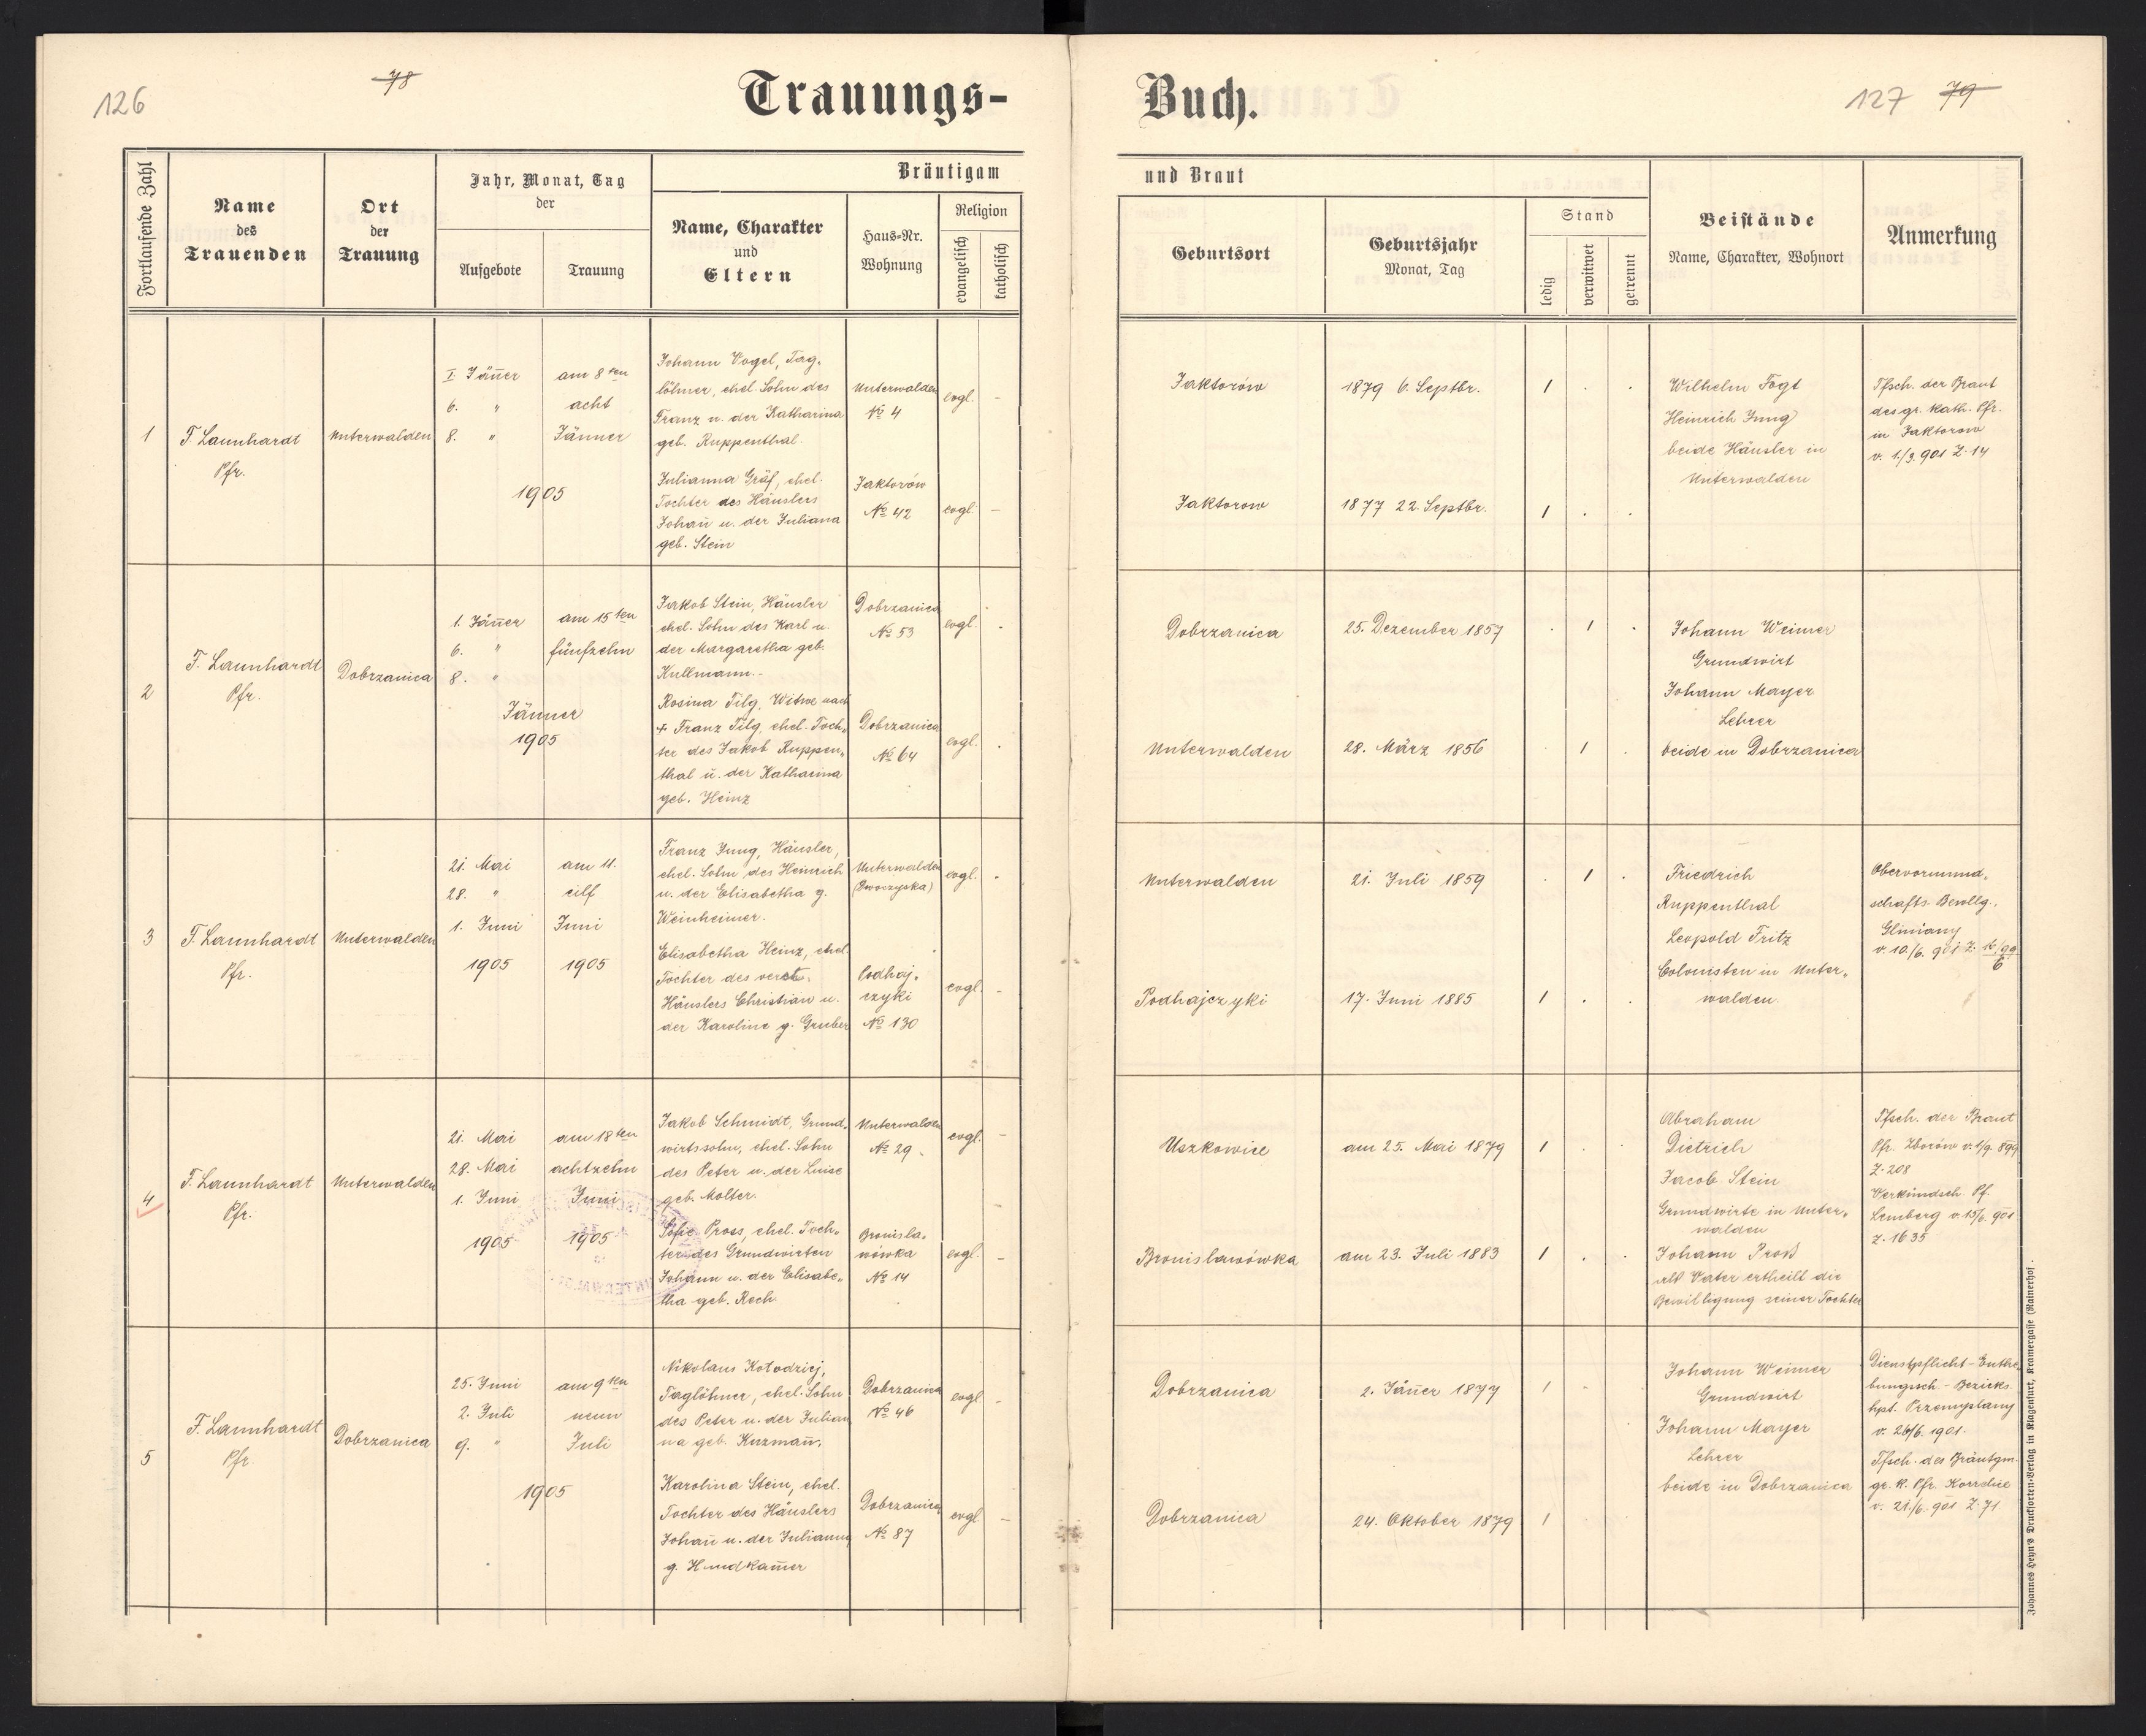 126
78
Trauungs-
Fortlaufende Zahl
Name
des
Trauenden
Ort
der
Trauung
Jahr, Monat, Tag
der
Aufgebote
Trauung
Bräutigam
Name, Charakter
und
Eltern
Haus-Nr.
Wohnung
Religion
evangelisch
katholisch
1
F. Launhardt
Pfr.
Unterwalden
I. Jäner
6. "
8. "
am 8ten
acht
Jänner
1905
Johann Vogel, Tag-
löhner, ehel. Sohn des
Franz u. der Katharina
geb. Ruppenthal.
Unterwalden
No 4
evgl. -
Julianna Gräf, ehel.
Tochter des Häuslers
Johan̄ u. der Juliana
geb. Stein
Jaktorów
No 42
evgl. -
2
F. Launhardt
Pfr.
Dobrzanica
1. Jäner
6. "
8. "
am 15ten
fünfzehn
Jänner
1905
Jakob Stein, Häusler
ehel. Sohn des Karl u.
der Margaretha geb.
Kullmann.
Dobrzanica
No 53
evgl. .
Rosina Tilg, Witwe nach
+ Franz Tilg, ehel. Toch„
ter des Jakob Ruppen„
thal u. der Katharina
geb. Heinz
Dobrzanica
No 64
evgl. .
3
F. Launhardt
Pfr.
Unterwalden
21. Mai
28. "
1. Juni
1905
am 11.
eilf
Juni
1905
Franz Jung, Häusler,
ehel. Sohn des Heinrich
u. der Elisabetha g.
Weinheimer.
Unterwalden
evgl. .
Elisabetha Heinz, ehel.
Tochter des verst.
Häuslers Christian u.
der Karoline g. Gruber
Podhaj„
czyki
No 130
evgl. -
4
F. Launhardt
Pfr.
Unterwalden
21. Mai
28. Mai
1. Juni
1905
am 18ten
achtzehn
Juni
1905
Jakob Schmidt, Grund„
wirtssohn, ehel. Sohn
des Peter u. der Luise
geb. Molter.
Unterwalden
No 29
evgl. -
Sofie Pross, ehel. Toch„
ter des Grundwirten
Johann u. der Elisabe„
tha geb. Rech.
Bronisla„
wówka
No 14
evgl. -
5
F. Launhardt
Pfr.
Dobrzanica
25. Juni
2. Juli
9. "
am 9ten
neun
Juli
1905
Nikolaus Kołodziej,
Taglöhner, ehel. Sohn
des Peter u. der Julian
na geb. Kuzman̄.
Dobrzanica
No 46
evgl. -
Karolina Stein, ehel.
Tochter des Häuslers
Johan̄ u. der Julianna
g. Hundkam̄er
Dobrzanica
No 87
evgl. -
Buch.
127 79
und Braut
Geburtsort
Geburtsjahr
Monat, Tag
Stand
ledig
verwitwet
getrennt
Beistände
Name, Charakter, Wohnort
Anmerkung
Jaktorów
1879 6. Septbr.
1 . .
Jaktorow
1877 22. Septbr.
1 . .
Wilhelm Fogt
Heinrich Jung
beide Häusler in
Unterwalden
Tfsch. der Braut
des gr. kath. Pfr.
in Jaktorow
v. 1./3. 901 Z. 14
Dobrzanica
25. Dezember 1857
. 1 .
Unterwalden
28. März 1856
. 1 .
Johann Weimer
Grundwirt
Johann Mayer
Lehrer
beide in Dobrzanica
Unterwalden
21. Juli 1859
. 1 .
Podhajczyki
17. Juni 1885
1 . .
Friedrich
Ruppenthal
Leopold Fritz
Colonisten in Unter„
walden.
Obervormund„
schafts-Bewllg.,
Gliniany
v. 10./6. 901 Z. 16/99
6
Uszkowice
am 25. Mai 1879
1 . .
Bronislawówka
am 23. Juli 1883
1 . .
Abraham
Dietrich
Jacob Stein
Grundwirte in Unter„
walden
Johann Proß
als Vater ertheilt die
Bewilligung seiner Tochter
Tfsch. der Braut
Pfr. Zborów v. 1/9. 899
Z. 208
Verkündsch. Pf.
Lemberg v. 15/6. 901
Z. 1635
Dobrzanica
2. Jäner 1877
1 .
Dobrzanica
24. Oktober 1879
1
Johann Weimer
Grundwirt
Johann Mayer
Lehrer
beide in Dobrzanica
Dienstpflicht-Enthe„
bungsch.- Bezirks
hpt. Przemyslany
v. 26/6. 1901.
Tfsch. des Bräutgm.
gr. k. Pfr.
v. 21./6. 901 Z. 71.
Johannes Heyn's Drucksorten-Verlag in Klagenfurt, Kramergasse (Rainerhof).